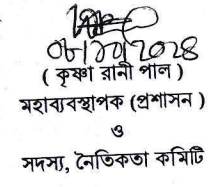 ০৮/১০/২০২৪
( কৃষ্ণা রানী পাল )
মহাব্যবস্থাপক (প্রশাসন )
ও
সদস্য, নৈতিকতা কমিটি